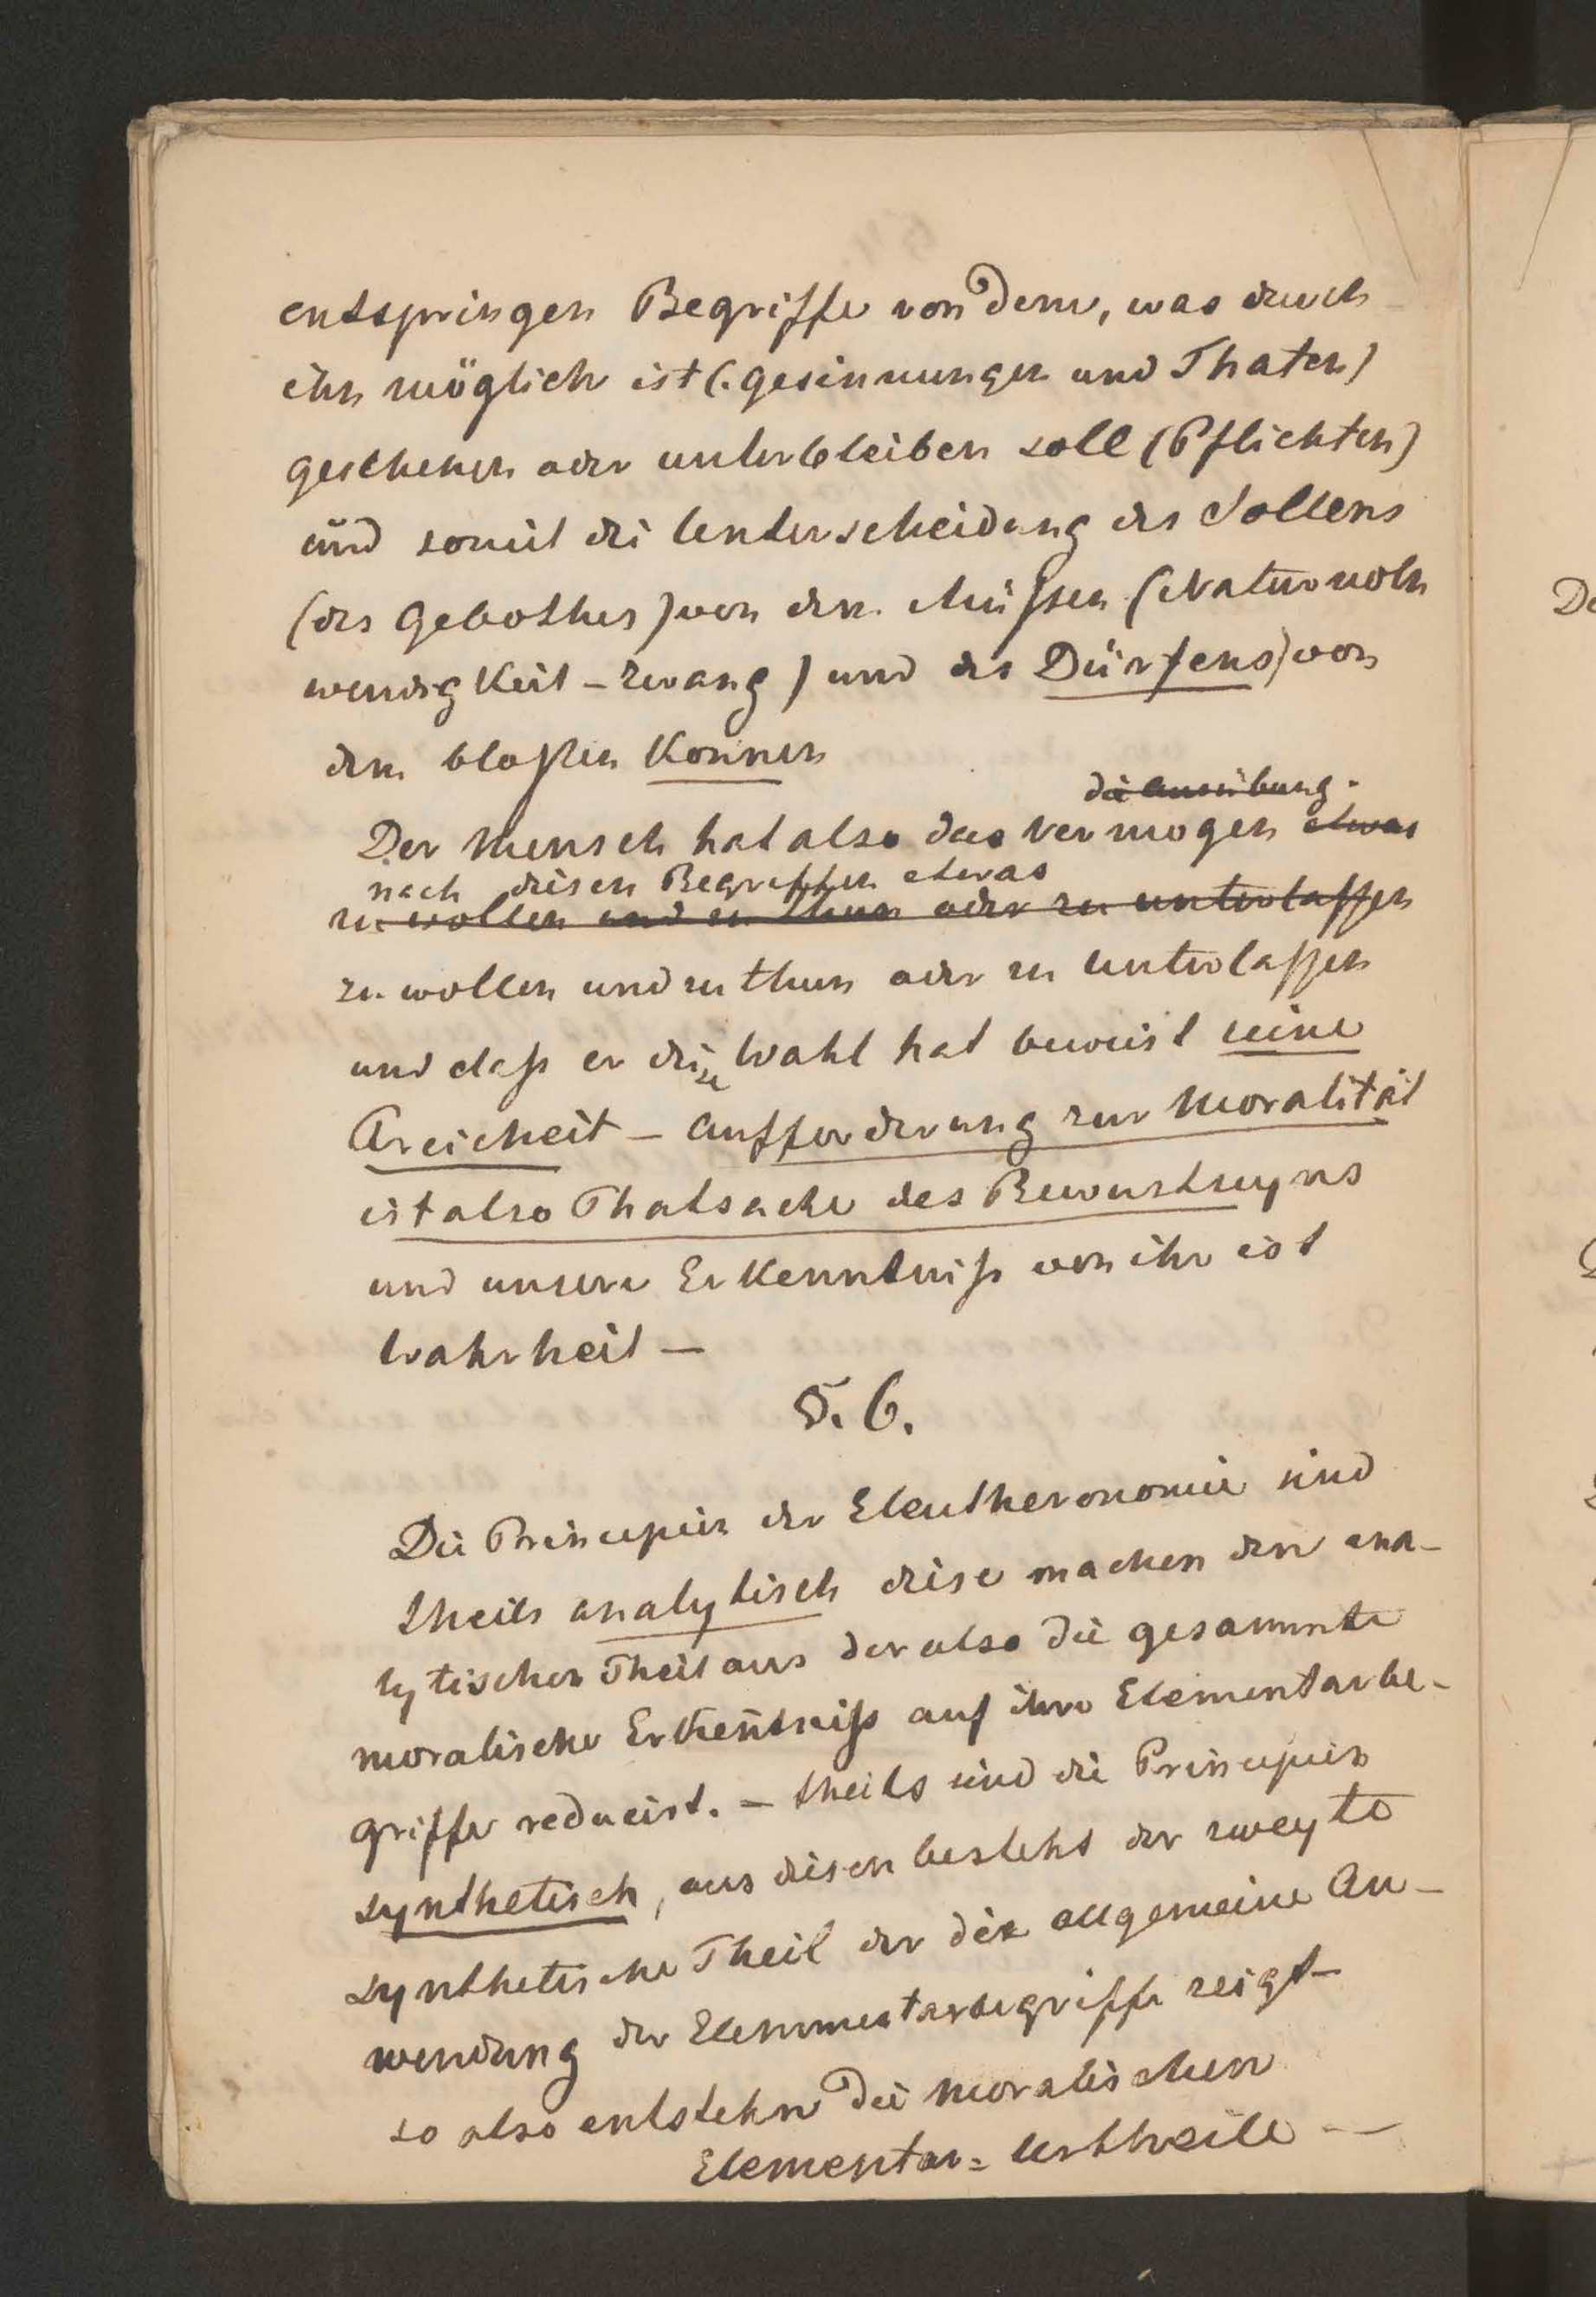 entspringen Begriffe von dem, was durch
ihn möglich ist (: gesinnungen und Thaten)
geschehen oder unterbleiben soll (Pflichten)
und somit die Unterscheidung des Sollens
(des Gebothes) von dem Müßen (Naturnoth
wendigkeit – Zwang) und des Dürfens) von
dem bloßen Konnen
die Ausübung.
Der Mensch hat also das Vermogen etwas
nach disen Begriffen etwas
zu wollen und zu thun oder zu unterlaßen
zu wollen und zu thun oder zu unterlaßen
und daß er dise Wahl hat beweist seine
Freicheit – Aufforderung zur Moralität
ist also Thatsache des Bewustseyns
und unsere Erkenntniß von ihr ist
Wahrheit –
§. 6.
Die Principien der Eleutheronomie sind
theils analytisch dise machen den ana-
lytischen Theil aus der also die gesammte
moralische Erkeñtniß auf ihre Elementarbe-
griffe reducirt. – theils sind die Principien
synthetisch, aus disen besteht der zweyte
synthetische Theil der die allgemeine An-
wendung der Elemmentarbegriffe zeigt –
so also entstehn die moralischen
Elementar= Urtheile –